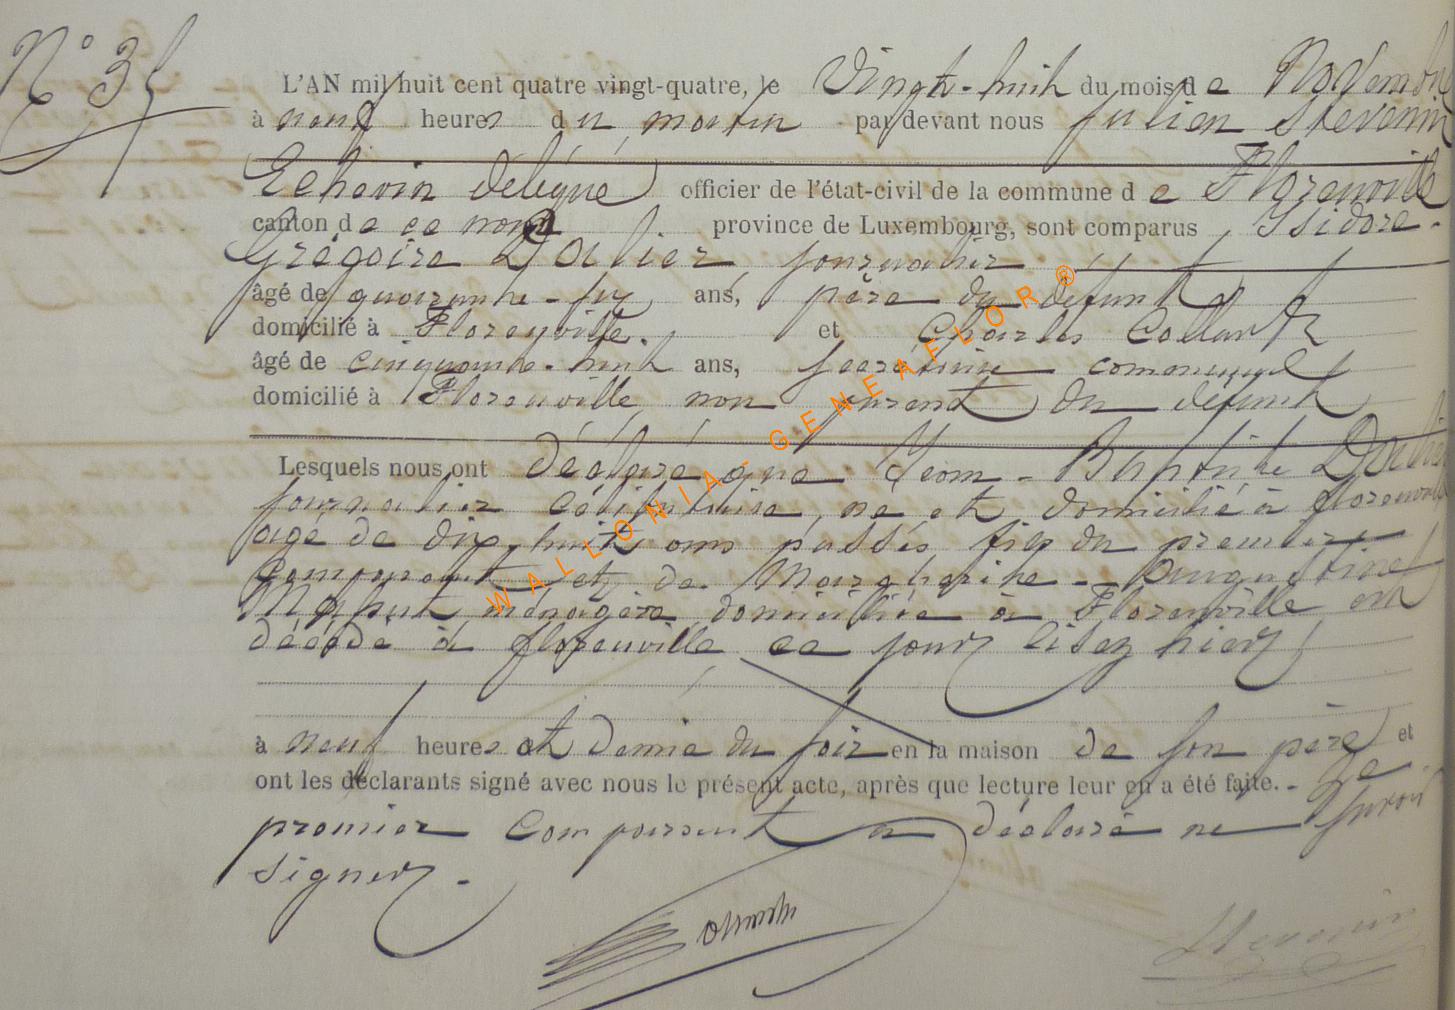 N° 35
L'AN mil huit cent quatre vingt-quatre, le Vingt-huit du mois de Novembre
à neuf heures du matin par devant nous Julien Stevenin
Echevin délégué officier de l'état-civil de la commune de Florenville
canton de ce nom province de Luxembourg, sont comparus Isidore-
Grégoire Dalier, journalier
âgé de quarante-six ans, père du défunt
domicilié à Florenville. et Charles Collard
âgé de cinquante-huit ans, secrétaire communal
domicilié à Florenville, non parent du défunt
Lesquels nous ont déclaré que Jean-Baptiste Dalier
journalier célibataire, né et domicilié à florenville
agé de dix-huit ans passés, fils du premier
Comparant et de Margherite-Augustine
ménagère domiciliée à Florenville est
décédé à florenville ce jour lisez hier
à neuf heures et demie du soir en la maison de son père et
ont les déclarants signé avec nous le présent acte, après que lecture leur en a été faite. - Le
premier Comparant a déclaré ne savoir
signer -
Stevenin
WALLONIA-GENEAFLOR®